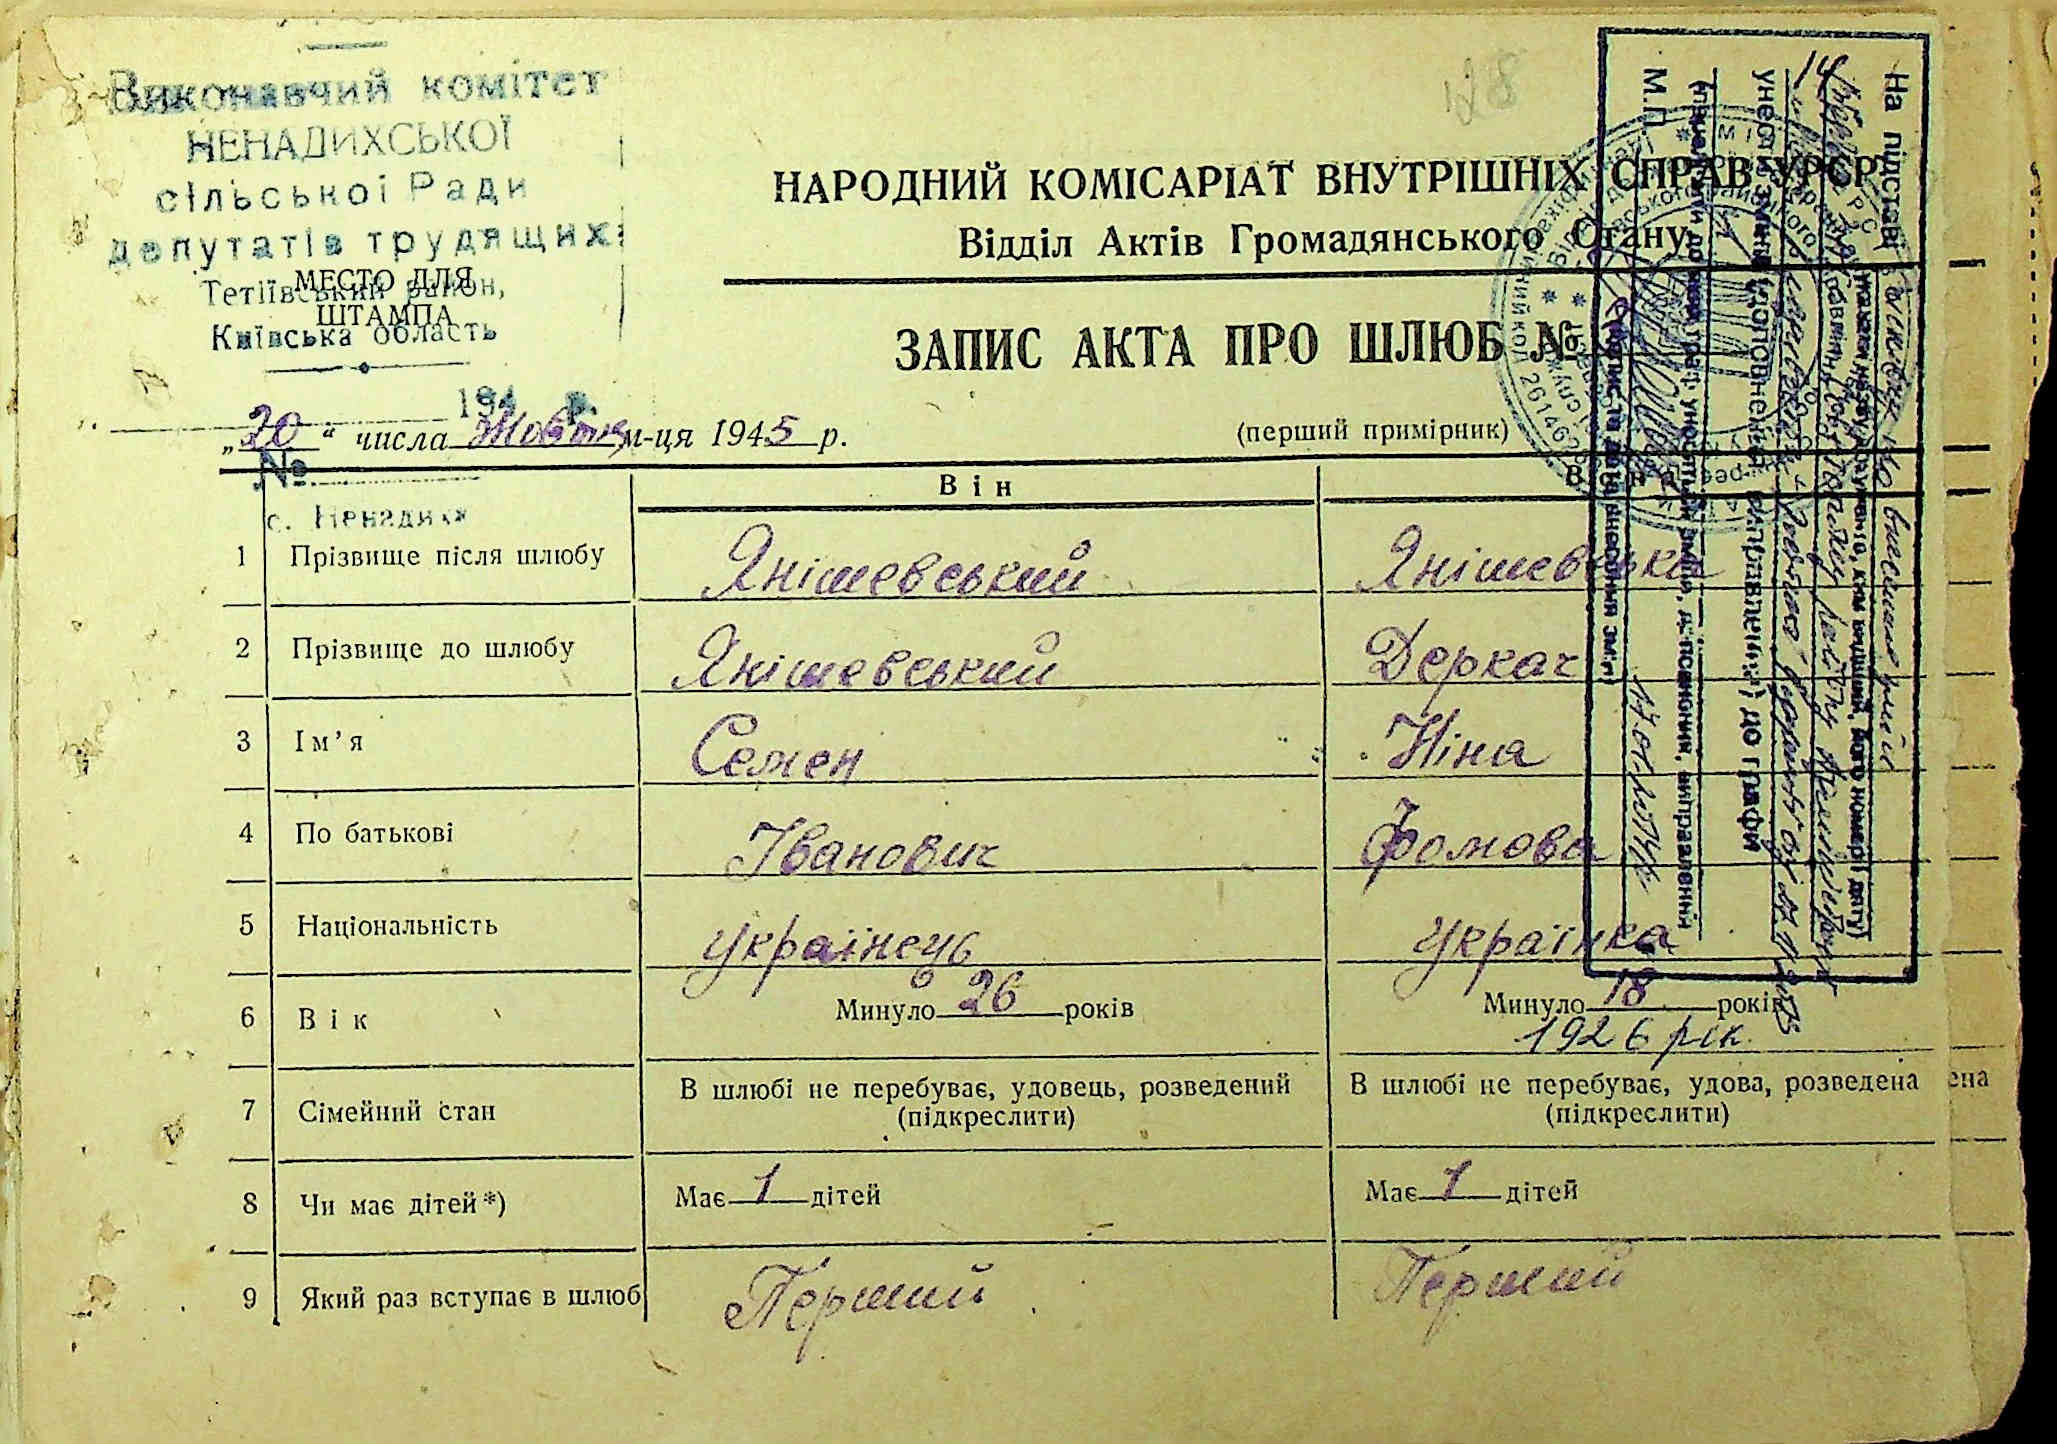 Виконавчий комітет
НЕНАДИХСЬКОЇ
сільської Ради
депутатів трудящих
Тетіївський район,
Київська область
МЕСТО ДЛЯ
ШТАМПА
194 р.
№
с. Ненадиха
128
НАРОДНИЙ КОМІСАРІАТ ВНУТРІШНІХ СПРАВ УРСР
Відділ Актів Громадянського Стану
ЗАПИС АКТА ПРО ШЛЮБ №
„20“ числа Жовтня м-ця 1945 р.
(перший примірник)
Він
Вона
1 Прізвище після шлюбу Янішевський Янішевська
2 Прізвище до шлюбу Янішевський Деркач
3 Ім’я Семен Ніна
4 По батькові Іванович Фомова
5 Національність Українець Українка
6 Вік Минуло 26 років Минуло 18 років
1926 рік
7 Сімейний стан В шлюбі не перебуває, удовець, розведений (підкреслити) В шлюбі не перебуває, удова, розведена (підкреслити)
ена
8 Чи має дітей*) Має 1 дітей Має 1 дітей
9 Який раз вступає в шлюб Перший Перший
На підставі
(вказати назву документа, ким виданий, його номер і дату)
унесено зміни (доповнення, виправлення) до графи
М.П.